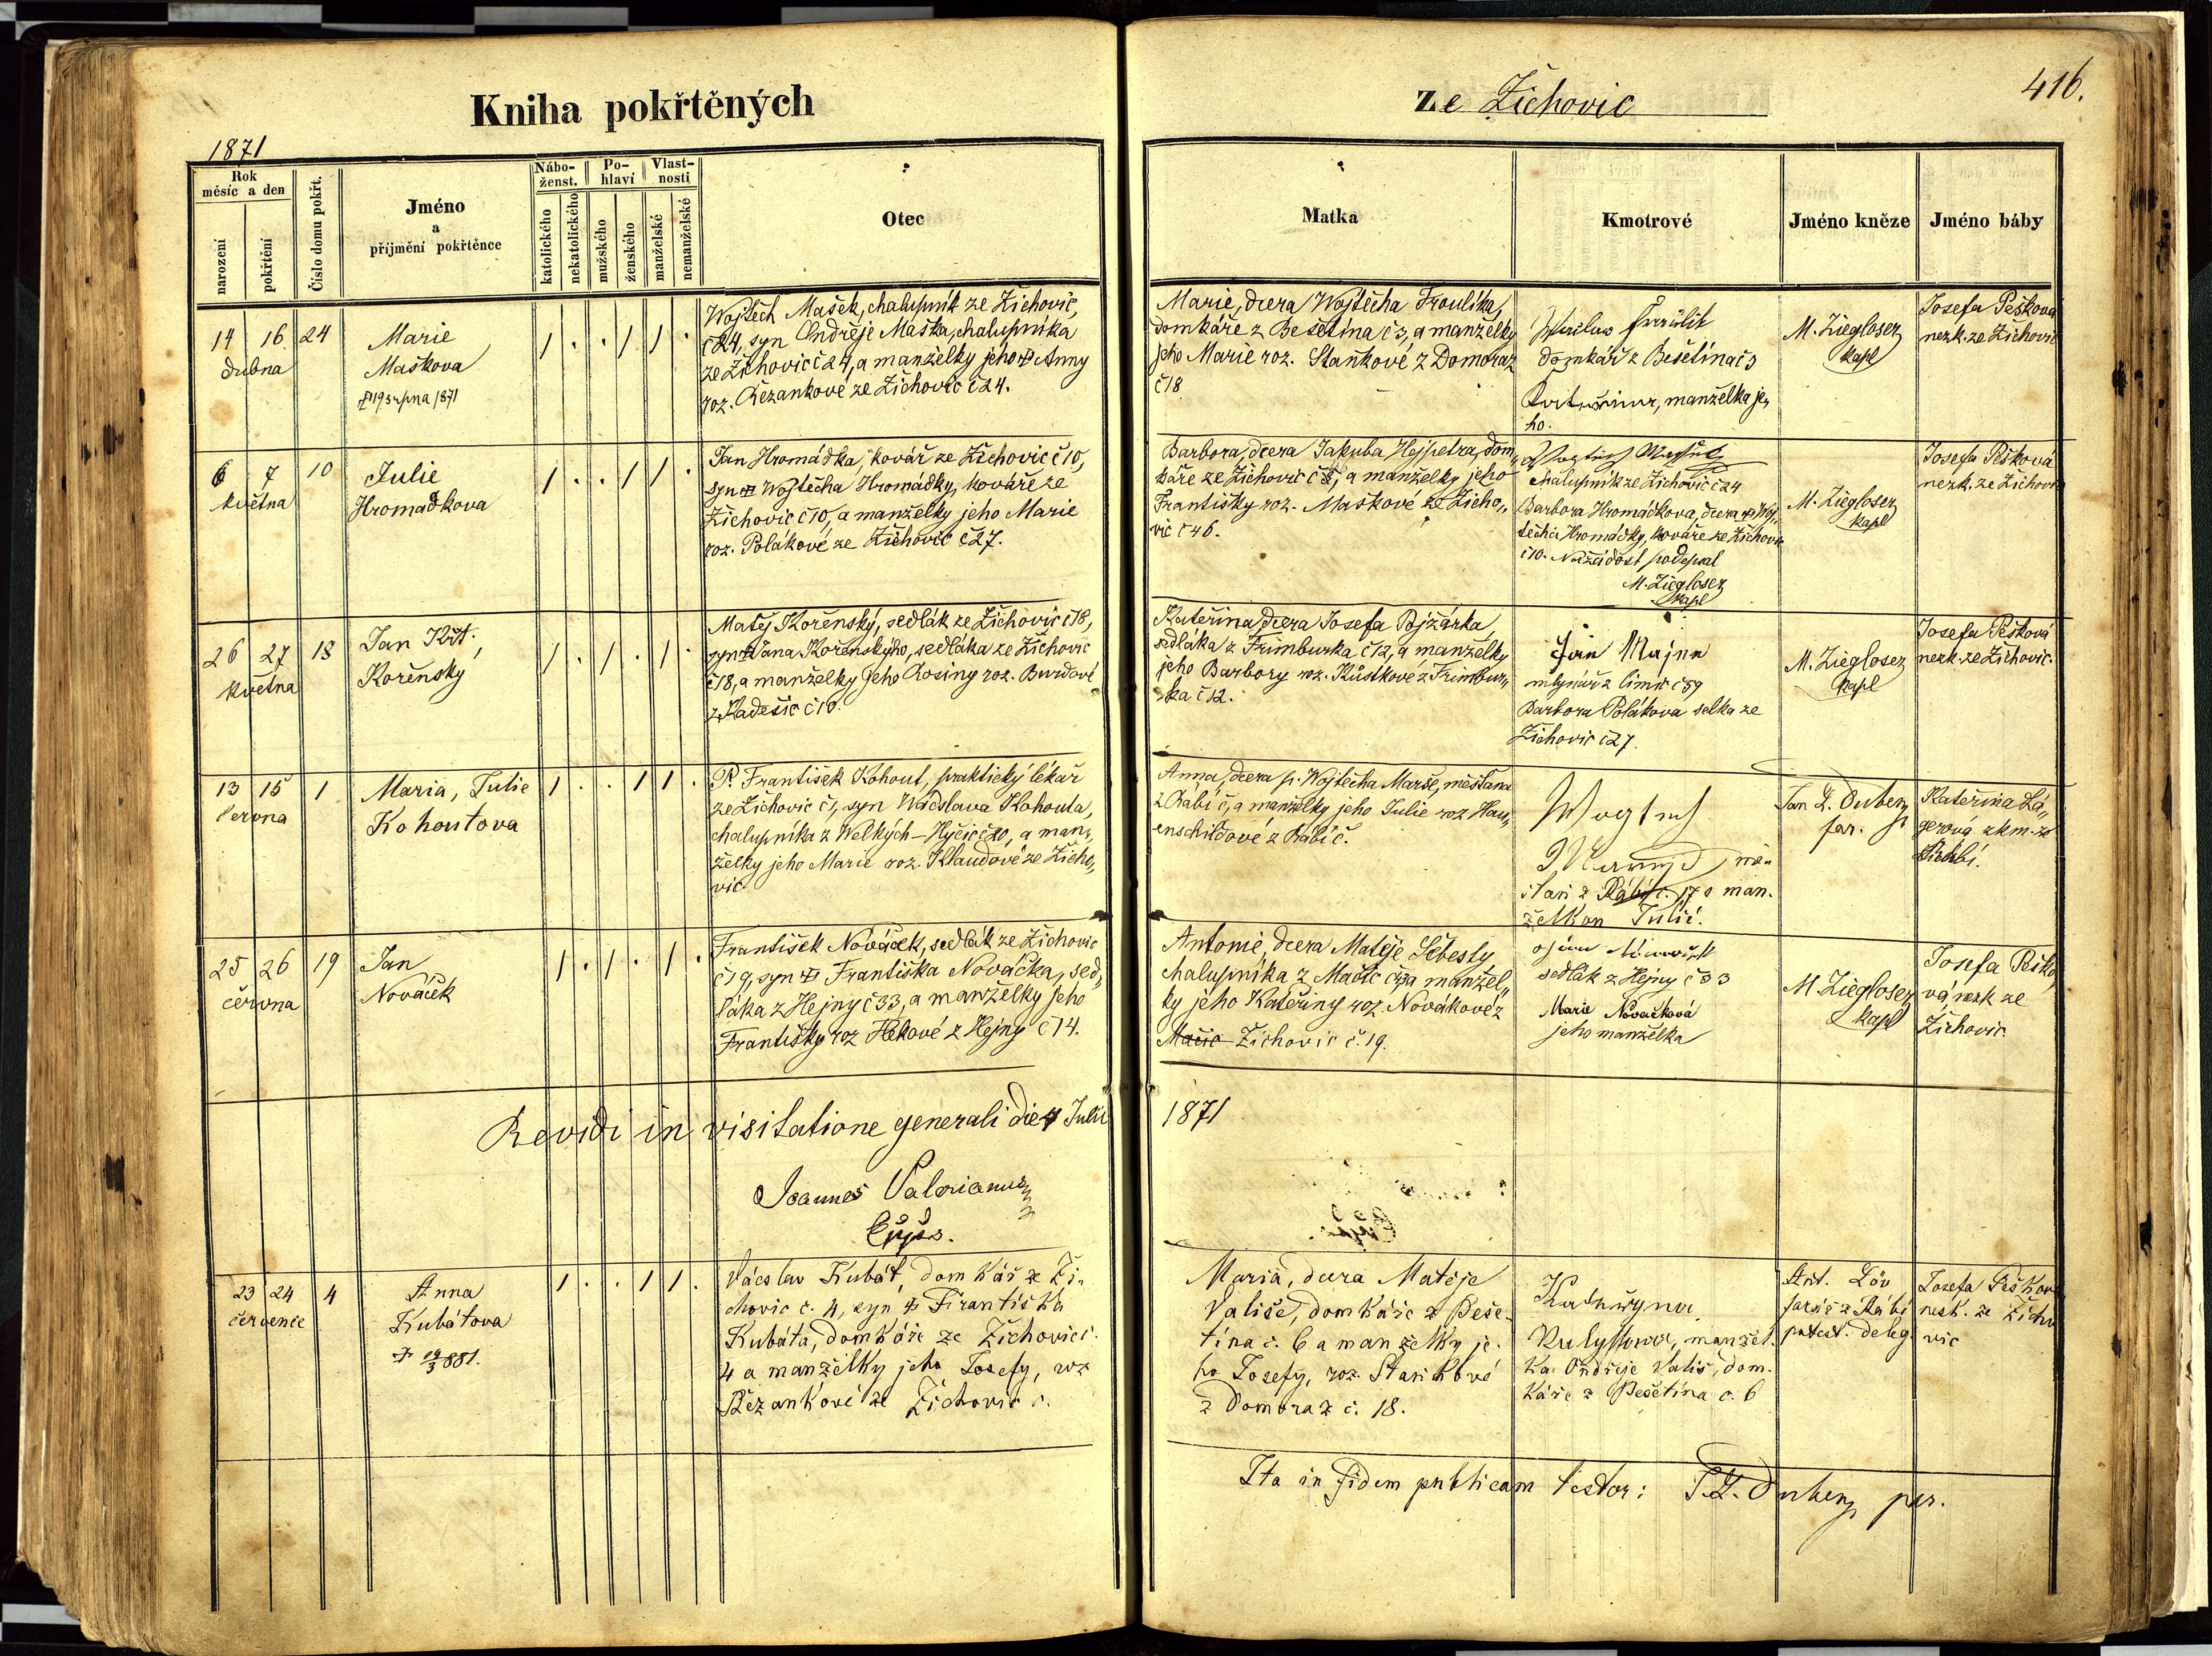 Kniha pokřtěných
ze Žichovic
416.
1871
Rok
měsíc a den
narození
pokřtění
Číslo domu pokřt.
Jméno
a
příjmění pokřtěnce
Nábo-
ženst.
katolického
nekatolického
Po-
hlaví
mužského
ženského
Vlast-
nosti
manželské
nemanželské
Otec
Matka
Kmotrové
Jméno kněze
Jméno báby
14 16 24
dubna
Marie
Maškova
19 srpna 1871
1 . . 1 1 .
Wojtěch Mašek, chalupník ze Žichovic,
č 24, syn Ondřeje Maška, chalupníka
ze Žichovic č 24, a manželky jeho Anny
roz. Řezankové ze Žichovic č 24.
Marie, dcera Wojtěcha Froulíka,
domkáře z Bešetína č 3, a manželky
jeho Marie roz. Staňkové z Domoraz
č 18
domkář z Bešetína č 3
manželka je„
ho.
M. Ziegloser
kapl
Josefa Pešková
nezk. ze Žichovic
6 7 10
května
Julie
Hromadkova
1 . . 1 1 .
Jan Hromádka, kovář ze Žichovic č 10,
syn Wojtěcha Hromádky, kováře ze
Žichovic č 10, a manželky jeho Marie
roz. Polákové ze Žichovic č 27.
Barbora, dcera Jakuba Hejpetra, dom„
káře ze Žichovic č, a manželky jeho
Františky roz. Maškové ze Žicho„
vic č 46.
chalupník ze Žichovic č 24
Barbora Hromádkova, dcera Woj„
těcha Hromádky, kováře ze Žichovic
č 10. Na žádost podepsal
M. Ziegloser
kapl
M. Ziegloser
kapl
Josefa Pešková
nezk. ze Žichovic
26 27 18
května
Jan Křt.
Kořenský
1 . 1 . 1 .
Matěj Kořenský, sedlák ze Žichovic č 18,
syn Jana Kořenskýho, sedláka ze Žichovic
č 18, a manželky jeho Rosiny roz. Burdové
z Kadešic č 10.
Kateřina, dcera Josefa Bjžárka,
sedláka z Frimburka č 12, a manželky
jeho Barbory roz. Kůstkové z Frimbur„
ka č 12.
Jan
mlynář z
Barbora Polákova selka ze
Žichovic č 27.
M. Ziegloser
kapl
Josefa Pešková
nezk. ze Žichovic.
13 15 1
června
Maria, Julie
Kohoutova
1 . . 1 1 .
P. František Kohout, praktický lékař
ze Žichovic č 1, syn Wácslava Kohouta,
chalupníka z Welkých-Hyčic č 20, a man„
želky jeho Marie roz. Klaudové ze Žicho„
vic
Anna, dcera p. Wojtěcha Marše, měšťana
z Rábí č, a manželky jeho Julie roz Hau„
enschildové z Rábí č.
Wogtěch
mě-
šťan z Rábí č. 17 s man-
želkou Julií.
Jan L. Duben
far.
Kateřina
zkm. ze
25 26 19
června
Jan
Nováček
1 . 1 . 1 .
František Nováček, sedlák ze Žichovic
č 19, syn Františka Nováčka, sed„
láka z Hejný č 33, a manželky jeho
Františky roz Hekové z Hejný č 14.
Antonie, dcera Matěje Šebesty
chalupníka z Mačic č a manžel„
ky jeho Kateřiny roz. Novákové z
Mačic Žichovic č. 19.
sedlák z Hejný č 33
Marie Nováčková
jeho manželka
M. Ziegloser
kapl
Josefa Peško
vá nezk ze
Žichovic.
Revidi in visitatione generali die 4 Julii 1871
Joannes Valerianus
23 24 4
července
Anna
Kubátova
19/3 881.
1 . . 1 1 .
Václav Kubát, domkář ze Ži-
chovic č. 4, syn Františka
Kubáta, domkáře ze Žichovic č.
4 a manželky jeho Josefy, roz
Řezankové ze Žichovic č.
Maria, dcera Matěje
Vališe, domkáře z Beše-
tína č. 6 a manželky je-
ho Josefy, roz. Staňkové
z Domoraz č. 18.
Kateřyna
manžel-
ka Ondřeje Vališ, dom-
káře z Bešetína č. 6
Ant. Löv
farář z Rábí
potest. deleg.
Josefa Pešková
nezk. ze Žicho
vic
Ita in fidem publicam testor: J. L. Duben par.